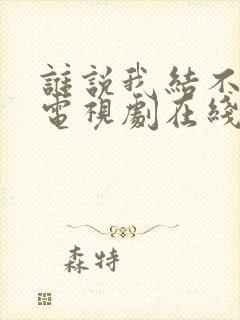 誰說我結不
電視劇在綫
森特